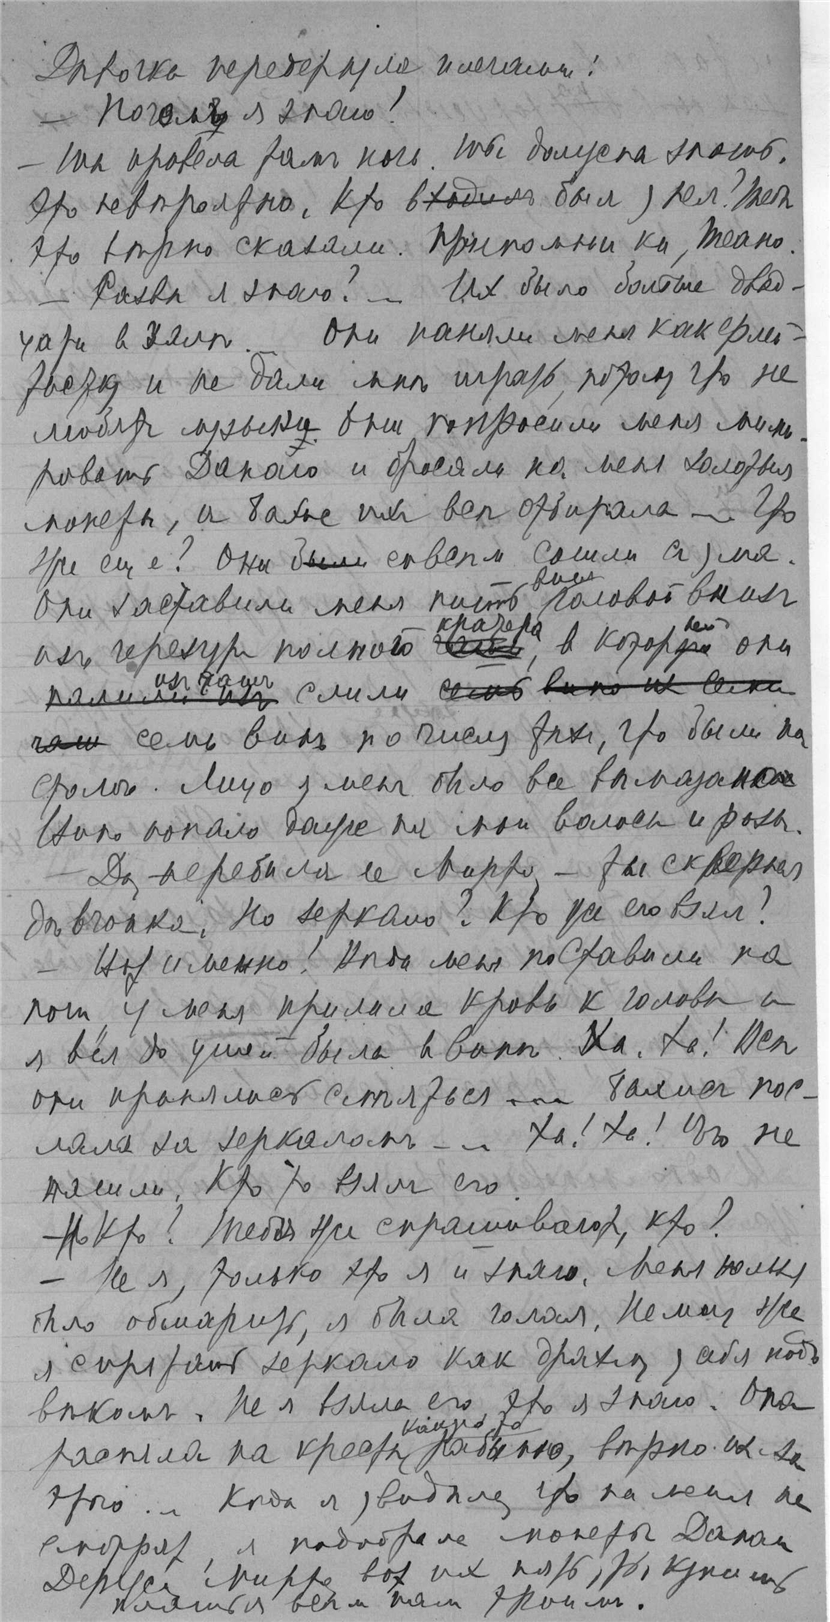 Дѣвочка передернула плечами:
— Почемъ я знаю!
— Ты провела тамъ ночь. Ты должна знать.
Это невѣроятно. Кто входилъ былъ у нея? Тебѣ
это вѣрно сказали. Припомни ка, Теано.
— Развѣ я знаю? — Ихъ было больше двад-
цати въ залѣ... Они наняли меня какъ флей-
тистку и не дали мнѣ играть, потому что не
любятъ музыки. Они попросили меня мими-
ровать Данаю и бросали на меня золотыя
монеты, и Бахис ихъ всѣ отбирала... Что
же еще? Они были совсѣмъ сошли съ ума.
Они заставили меня пить внизъ головой внизъ
изъ черезчуръ полнаго кратера, въ который они
налили изъ чашъ слили семь вино их семи
чаш семь винъ по числу тѣхъ, что были на
столѣ. Лицо у меня было все вымазанное
Вино попало даже на мои волосы и розы.
— Да, — перебила ее Мирто, — ты скверная
дѣвчонка. Но зеркало? Кто же его взял?
— Вот именно! Когда меня поставили на
ноги, у меня прилила кровь къ головѣ и
я вся до ушей была въ винѣ. Ха, ха! Всѣ
они принялись смѣяться... Бахисъ пос-
лала за зеркаломъ... Ха! ха! Его не
нашли. Кто то взялъ его.
— Но Кто? Тебя же спрашиваютъ, кто?
— Не я, только это я и знаю. Меня нельзя
было обшарить, я была голая. Не могу же
я спрятать зеркало какъ драхму у себя подъ
вѣкомъ. Не я взяла его, это я знаю. Она
распяла на крестѣ какую то рабыню, вѣрно изъ за
этого... Когда я увидѣла, что на меня не
смотрят, я подобрала монеты Данаи
Держи, Мирто, вот их пять, ты купишь
платья всѣм нам троимъ.